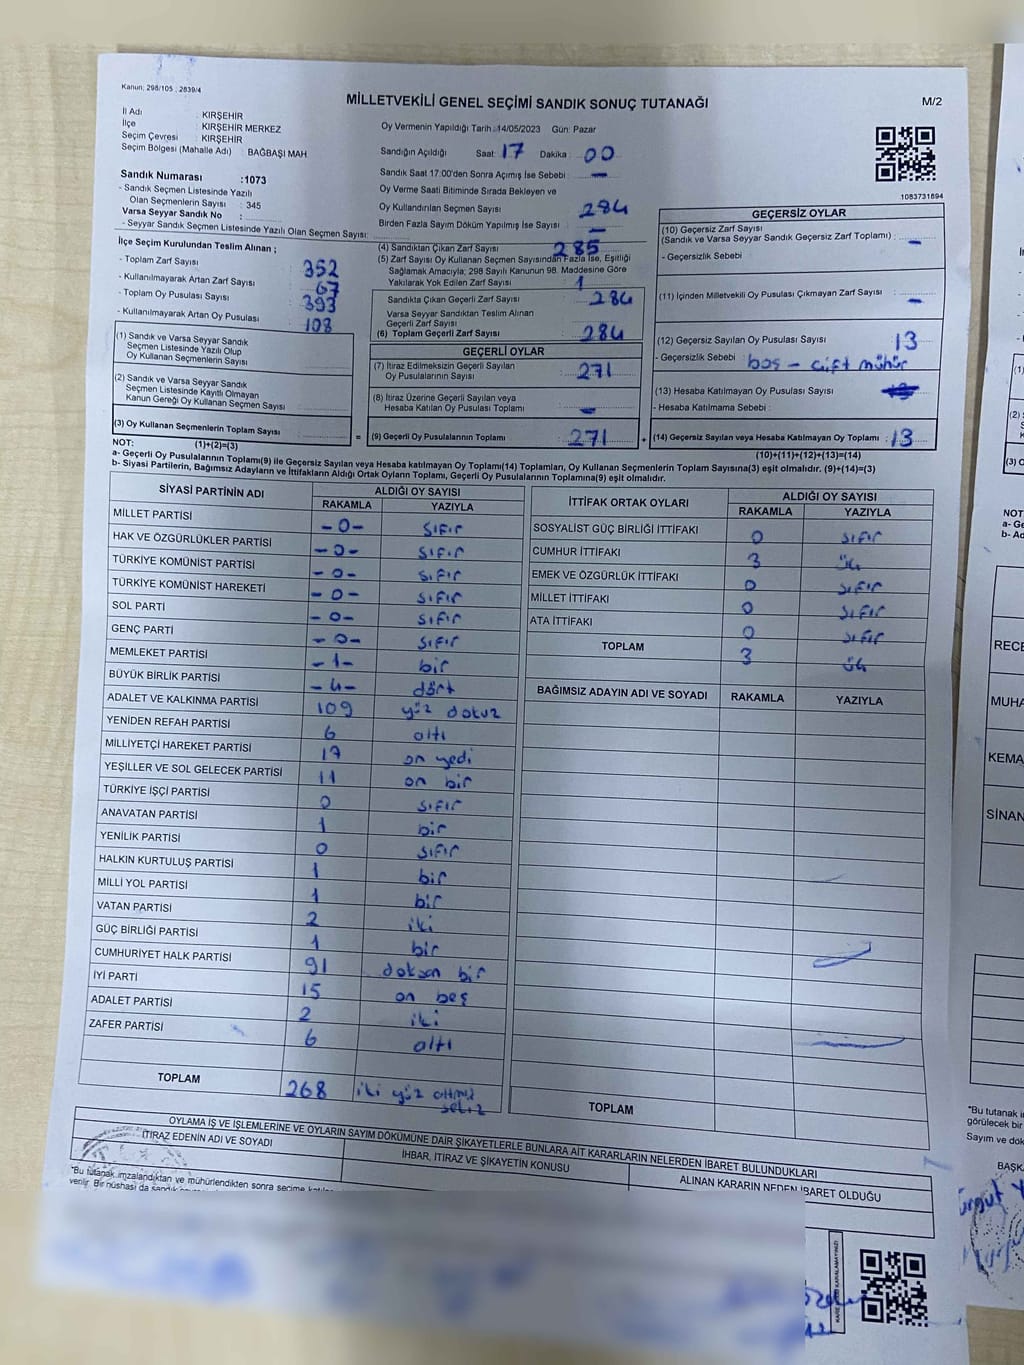 Kanun; 298/105 ; 2839/4
MİLLETVEKİLİ GENEL SEÇİMİ SANDIK SONUÇ TUTANAĞI
M/2
İl Adı : KIRŞEHİR
İlçe : KIRŞEHİR MERKEZ
Seçim Çevresi : KIRŞEHİR
Seçim Bölgesi (Mahalle Adı) : BAĞBAŞI MAH
Sandık Numarası :1073
- Sandık Seçmen Listesinde Yazılı
Olan Seçmenlerin Sayısı : 345
Varsa Seyyar Sandık No :
- Seyyar Sandık Seçmen Listesinde Yazılı Olan Seçmen Sayısı:
Oy Vermenin Yapıldığı Tarih :14/05/2023 Gün: Pazar
Sandığın Açıldığı Saat 17 Dakika : 00
Sandık Saat 17:00'den Sonra Açımış İse Sebebi : –
Oy Verme Saati Bitiminde Sırada Bekleyen ve
Oy Kullandırılan Seçmen Sayısı : 284
Birden Fazla Sayım Döküm Yapılmış İse Sayısı : –
1083731894
İlçe Seçim Kurulundan Teslim Alınan ;
- Toplam Zarf Sayısı : 352
- Kullanılmayarak Artan Zarf Sayısı : 67
- Toplam Oy Pusulası Sayısı : 393
- Kullanılmayarak Artan Oy Pusulası : 108
(1) Sandık ve Varsa Seyyar Sandık
Seçmen Listesinde Yazılı Olup
Oy Kullanan Seçmenlerin Sayısı :
(2) Sandık ve Varsa Seyyar Sandık
Seçmen Listesinde Kayıtlı Olmayan
Kanun Gereği Oy Kullanan Seçmen Sayısı :
(3) Oy Kullanan Seçmenlerin Toplam Sayısı :
(4) Sandıktan Çıkan Zarf Sayısı : 285
(5) Zarf Sayısı Oy Kullanan Seçmen Sayısından Fazla İse, Eşitliği
Sağlamak Amacıyla; 298 Sayılı Kanunun 98. Maddesine Göre
Yakılarak Yok Edilen Zarf Sayısı : 1
Sandıkta Çıkan Geçerli Zarf Sayısı : 284
Varsa Seyyar Sandıktan Teslim Alınan
Geçerli Zarf Sayısı :
(6) Toplam Geçerli Zarf Sayısı : 284
GEÇERLİ OYLAR
(7) İtiraz Edilmeksizin Geçerli Sayılan
Oy Pusulalarının Sayısı : 271
(8) İtiraz Üzerine Geçerli Sayılan veya
Hesaba Katılan Oy Pusulası Toplamı : –
= (9) Geçerli Oy Pusulalarının Toplamı : 271
GEÇERSİZ OYLAR
(10) Geçersiz Zarf Sayısı
(Sandık ve Varsa Seyyar Sandık Geçersiz Zarf Toplamı) : –
- Geçersizlik Sebebi :
(11) İçinden Milletvekili Oy Pusulası Çıkmayan Zarf Sayısı : –
(12) Geçersiz Sayılan Oy Pusulası Sayısı : 13
- Geçersizlik Sebebi : boş – çift mühür
(13) Hesaba Katılmayan Oy Pusulası Sayısı :
- Hesaba Katılmama Sebebi :
+ (14) Geçersiz Sayılan veya Hesaba Katılmayan Oy Toplamı : 13
NOT: (1)+(2)=(3)
(10)+(11)+(12)+(13)=(14)
a- Geçerli Oy Pusulalarının Toplamı(9) ile Geçersiz Sayılan veya Hesaba katılmayan Oy Toplamı(14) Toplamları, Oy Kullanan Seçmenlerin Toplam Sayısına(3) eşit olmalıdır. (9)+(14)=(3)
b- Siyasi Partilerin, Bağımsız Adayların ve İttifakların Aldığı Ortak Oyların Toplamı, Geçerli Oy Pusulalarının Toplamına(9) eşit olmalıdır.
SİYASİ PARTİNİN ADI
ALDIĞI OY SAYISI
RAKAMLA YAZIYLA
MİLLET PARTİSİ -0- sıfır
HAK VE ÖZGÜRLÜKLER PARTİSİ -0- sıfır
TÜRKİYE KOMÜNİST PARTİSİ -0- sıfır
TÜRKİYE KOMÜNİST HAREKETİ -0- sıfır
SOL PARTİ -0- sıfır
GENÇ PARTİ -0- sıfır
MEMLEKET PARTİSİ -1- bir
BÜYÜK BİRLİK PARTİSİ -4- dört
ADALET VE KALKINMA PARTİSİ 109 yüz dokuz
YENİDEN REFAH PARTİSİ 6 altı
MİLLİYETÇİ HAREKET PARTİSİ 17 on yedi
YEŞİLLER VE SOL GELECEK PARTİSİ 11 on bir
TÜRKİYE İŞÇİ PARTİSİ 0 sıfır
ANAVATAN PARTİSİ 1 bir
YENİLİK PARTİSİ 0 sıfır
HALKIN KURTULUŞ PARTİSİ 1 bir
MİLLİ YOL PARTİSİ 1 bir
VATAN PARTİSİ 2 iki
GÜÇ BİRLİĞİ PARTİSİ 1 bir
CUMHURİYET HALK PARTİSİ 91 doksan bir
İYİ PARTİ 15 on beş
ADALET PARTİSİ 2 iki
ZAFER PARTİSİ 6 altı
TOPLAM 268 iki yüz altmış
sekiz
İTTİFAK ORTAK OYLARI
ALDIĞI OY SAYISI
RAKAMLA YAZIYLA
SOSYALİST GÜÇ BİRLİĞİ İTTİFAKI 0 sıfır
CUMHUR İTTİFAKI 3 üç
EMEK VE ÖZGÜRLÜK İTTİFAKI 0 sıfır
MİLLET İTTİFAKI 0 sıfır
ATA İTTİFAKI 0 sıfır
TOPLAM 3 üç
BAĞIMSIZ ADAYIN ADI VE SOYADI RAKAMLA YAZIYLA
TOPLAM
OYLAMA İŞ VE İŞLEMLERİNE VE OYLARIN SAYIM DÖKÜMÜNE DAİR ŞİKAYETLERLE BUNLARA AİT KARARLARIN NELERDEN İBARET BULUNDUKLARI
İTİRAZ EDENİN ADI VE SOYADI
İHBAR, İTİRAZ VE ŞİKAYETİN KONUSU
ALINAN KARARIN NEDEN İBARET OLDUĞU
*Bu tutanak imzalandıktan ve mühürlendikten sonra seçime
verilir. Bir nüshası da
NOT
a- Ge
b- Ad
RECE
MUHA
KEMA
SİNAN
*Bu tutanak
görülecek bir
Sayım ve dök
BAŞK